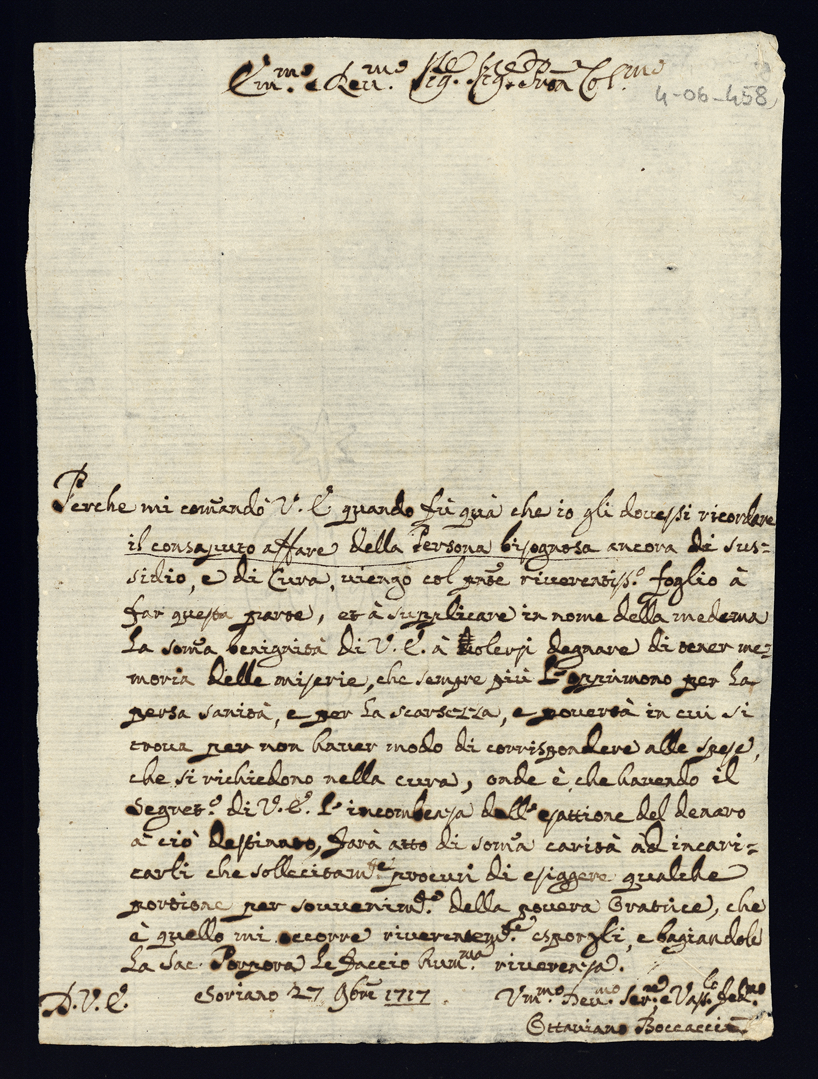 Em.mo e Rev.mo Sig.re Sig.re e Pron Col.mo
4-06-458
Perche mi comandò V. E. quando fù quà che io gli dovessi ricordare
il consaputo affare della Persona bisognosa ancora di sus=
sidio, e di Cura, viengo col pnte riverentiss.o foglio à
far questa parte, et à supplicare in nome della medema
la soma benignità di V. E. à volersi degnare di tener me=
moria delle miserie, che sempre più l'opprimono per la
persa sanità, e per la scarsezza, e povertà in cui si
trova per non haver modo di corrispondere alle spese,
che si richiedono nella cura, onde è che havendo il
Segret.o di V. E. l'incombenza dell'esattione del denaro
à ciò destinato, farà atto di soma carità ad incari=
carli che sollecitam.te procuri di esiggere qualche
portione per souvenim.to della povera Oratrice, che
è quello mi occorre riverentem.te esporgli, e bagiandole
la Sac. Porpora le faccio hum.ma riverenza.
D. V. E. Soriano 27 9bre 1717. Um.mo Dev.mo Ser.re e Vass.lo fed.mo
Ottaviano Boccacci